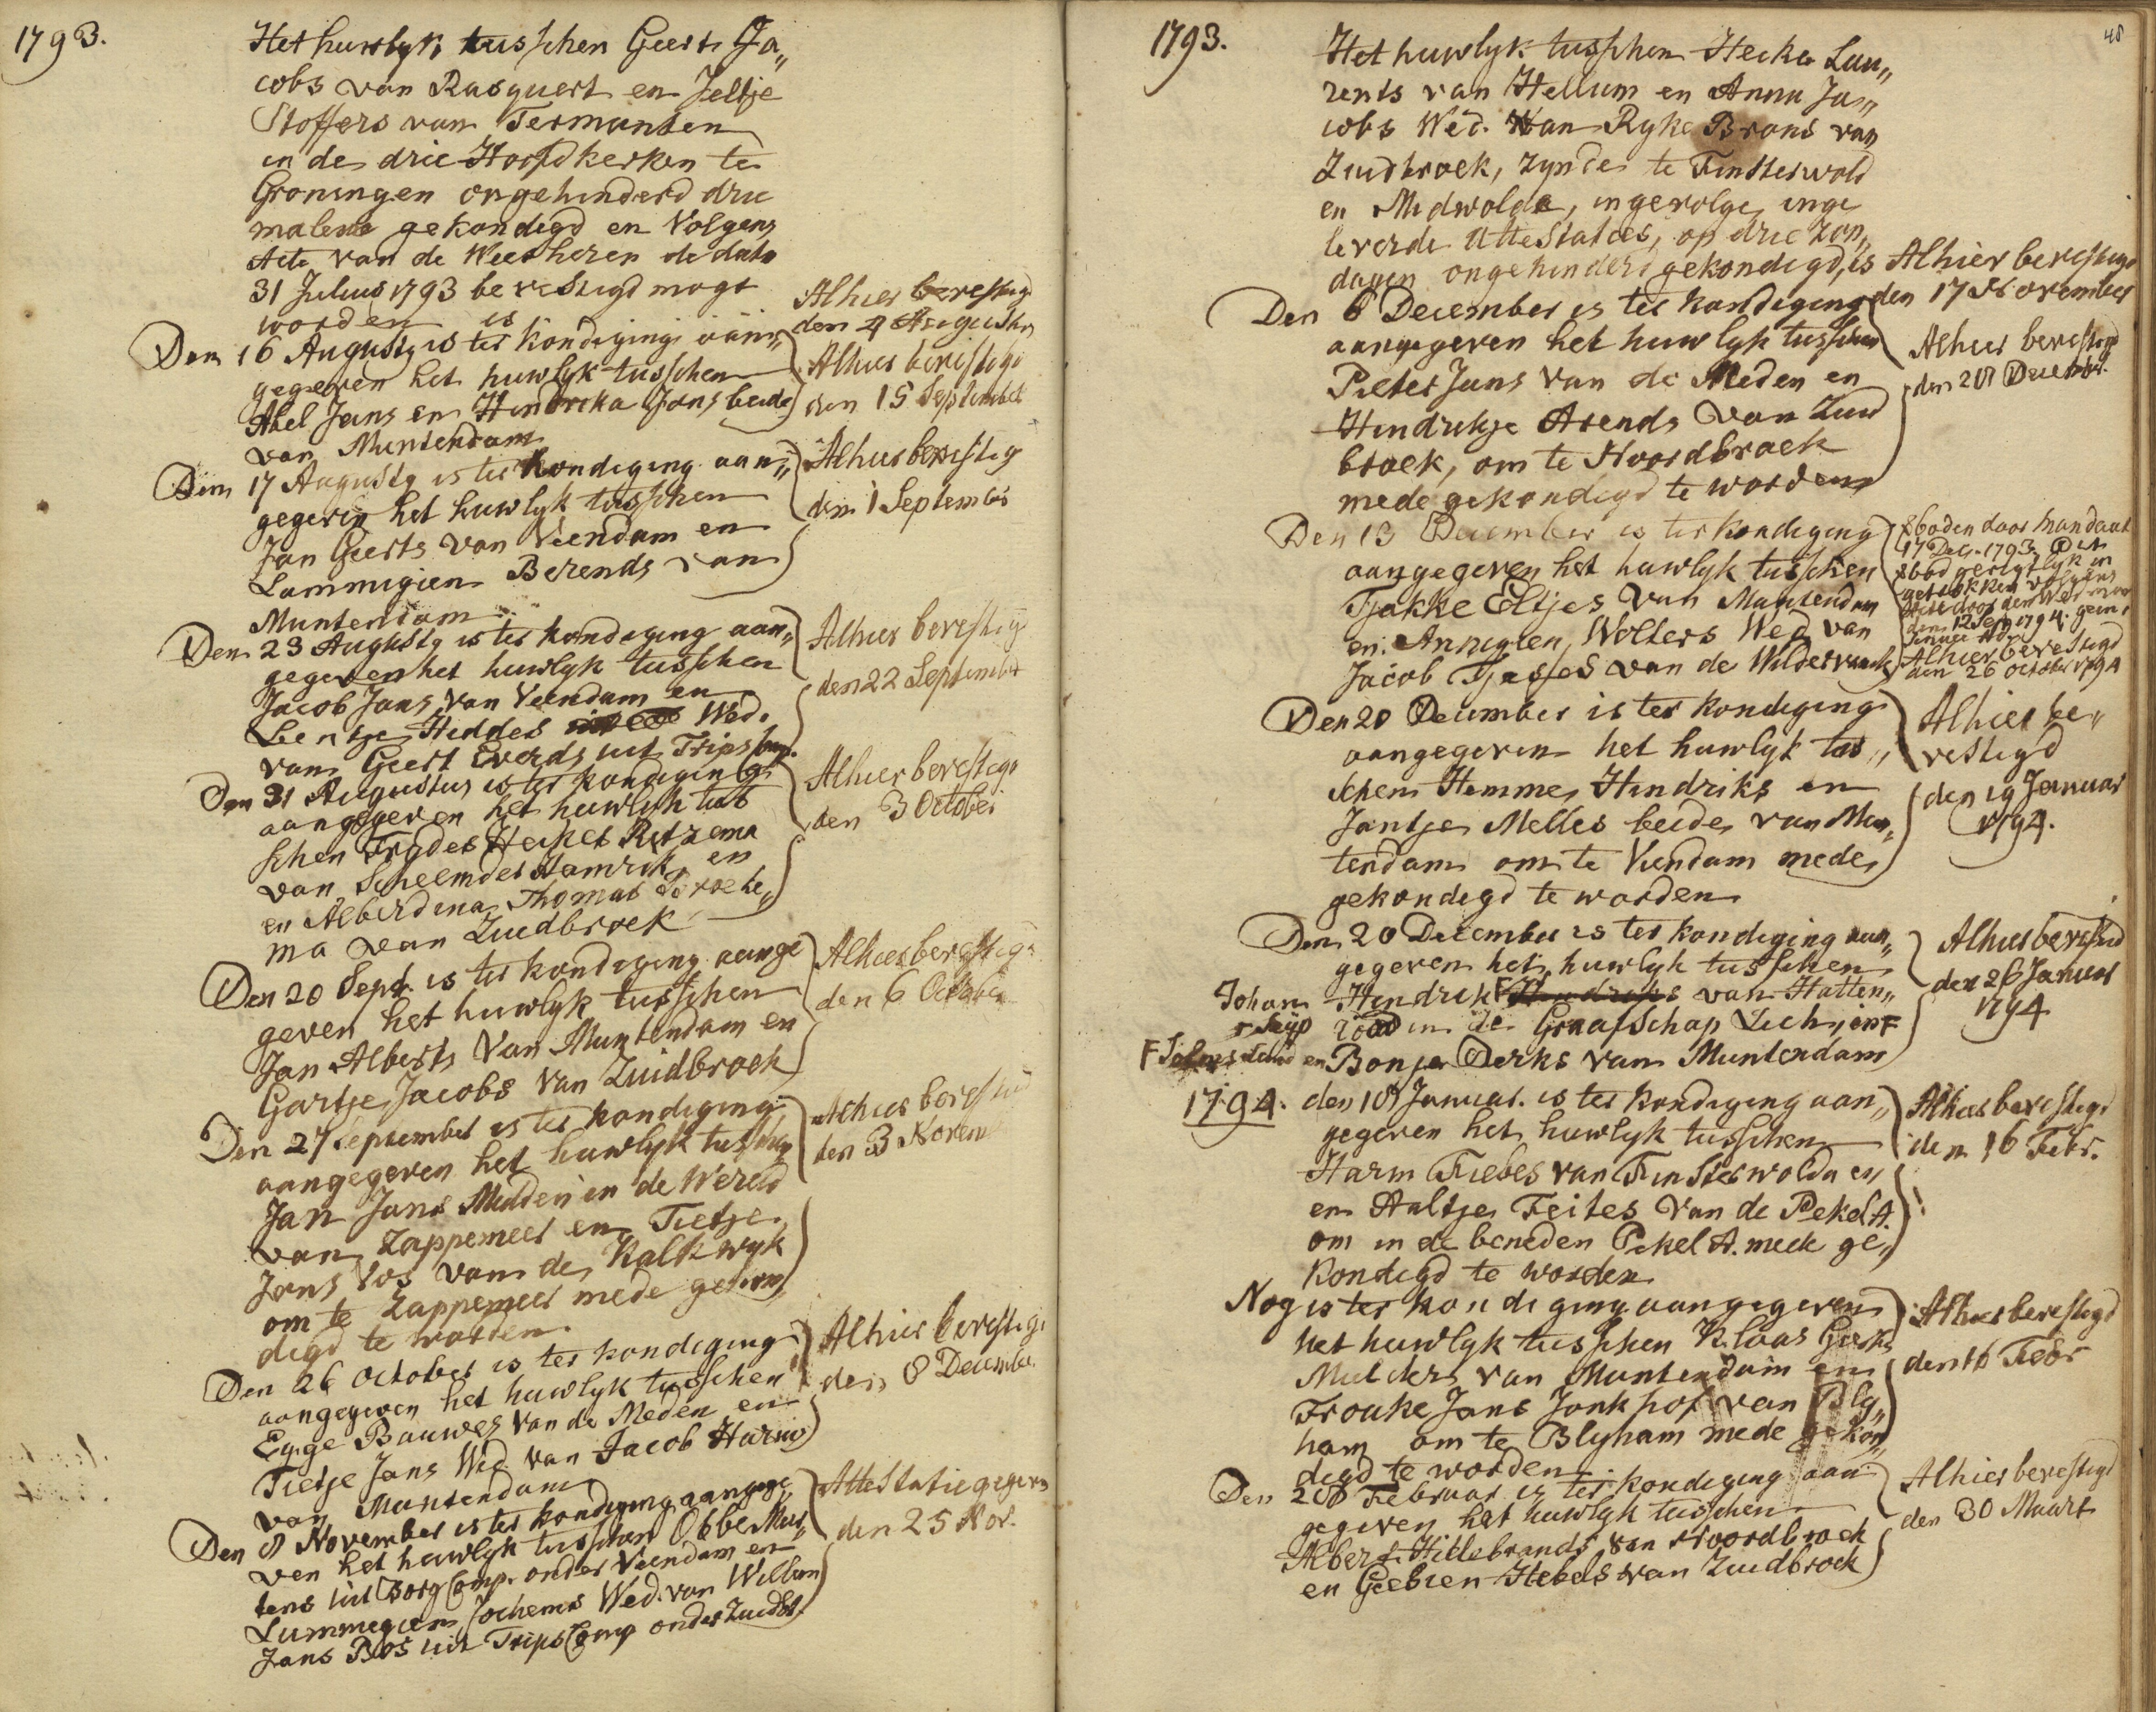 1793.
Het huwlyk tusschen Geert Ja„
cobs van Rasquert en Jeltje
Stoffers van Termunten
in de drie Hoofdkerken te
Groningen ongehinderd drie
malen gekondigd en Volgens
Acte van de Weesheren de dato
31 Julius 1793 bevestigd mogt
worden is
Alhier bevestigd
den 4 Augustus
Den 16 Augusty is ter kondiging aan„
gegeven het huwlyk tusschen
Abel Jans en Hindreka Jans beide
van Muntendam
Alhier bevestigd
den 15 September
Den 17 Augusty is ter kondiging aan„
gegeven het huwlyk tusschen
Jan Geerts van Veendam en
Lammigien Berends van
Muntendam
Alhier bevestig
den 1 September
Den 23 Augusty is ter kondiging aan„
gegeven het huwlyk tusschen
Jacob Jans van Veendam en
Bentje Hiddes Wed.
van Geert Everds uit Tripscomp.
Alhier bevestig
den 22 September
Den 31 Augustus is ter kondiging
aangegeven het huwlyk tus
schen Frydes Heikes Ritzema
van Scheemder Hamrik en
en Alberdina Thomas
ma van Zuidbroek
Alhier bevestigd
den 3 October
Den 20 Sept. is ter kondiging aange
geven het huwlyk tusschen
Jan Alberts van Muntendam en
Gartje Jacobs van Zuidbroek
Alhier bevestig
den 6 October
Den 27 September is ter kondiging
aangegeven het huwlyk tusschen
Jan Jans Midden in de Wereld
van Zappemeer en Tietje
Jans Vos van de Kalkwyk
om te Zappemeer mede gekon„
digd te worden
Alhier bevestigd
den 3 Novem
Den 26 October is ter kondiging
aangegeven het huwlyk tusschen
Egge Bauwes van de Meden en
Tietje Jans Wed. van Jacob Harms
van Muntendam
Alhier bevestigd
den 8 December
Den 8 November is ter kondiging aangege„
ven het huwlyk tusschen Obbe Mur„
tens uit Borg Comp. onder Veendam en
Lummegien Jochems Wed. van Willem
Jans Bos uit Trips Comp onder Zuidbr.
Attestatie gegeven
den 25 Nov.
48
1793.
Het huwlyk tusschen Heike Lau„
rents van Hellum en Anna Ja„
cobs Wed. van Ryke Brons van
Zuidbroek, zynde te Finsterwold
en Midwolda, ingevolge inge
leverde Attestaties, op drie Zon„
dagen ongehinderd gekondigd, is Alhier bevestigd
den 17 November
Den 6 December is ter kondiging
aangegeven het huwlyk tusschen
Pieter Jans van de Meden en
Hindrikje Arends van Zuid
broek, om te Noordbroek
mede gekondigd te worden
Alhier bevestigd
den 28 Decembr.
Den 13 December is ter kondiging
aangegeven het huwlyk tusschen
Tjakke Eltjes van Muntendam
en Annigien Wolters Wed. van
Jacob Tjasses van de Wildervank
boden door mandaat
17 Dec. 1793. Dit
bod geregtlyk in
getrokken volgens
Acte door den
den 12 Sept 1794.
Alhier bevestigd
den 26 October 1794
Den 20 December is ter kondiging
aangegeven het huwlyk tus„
schen Hemme Hindriks en
Jantje Melles beide van Mun„
tendam om te Veendam mede
gekondigd te worden
Alhier be„
vestigd
den 19 Januar
1794.
Den 20 December is ter kondiging aan„
gegeven het huwlyk tusschen
Johan Hendrik van Hatten„
rood in de Graafschap Lich, en
en Bonje Derks van Muntendam
Alhier bevestigd
den 26 Januar
1794
1794. den 18 Januar. is ter kondiging aan„
gegeven het huwlyk tusschen
Harm Fiebes van Finsterwolda en
en Aaltje Feites van de Pekel A.
om in de beneden Pekel A. mede ge„
kondigd te worden
Alhier bevestigd
den 16 Febr.
Nog is ter kondiging aangegeven
het huwlyk tusschen Klaas Geerts
Mulder van Muntendam en
Frouke Jans Jonkhof van Bly„
ham om te Blyham mede gekon„
digd te worden
Alhier bevestigd
den 16 Febr
Den 28 Februar is ter kondiging aan
gegeven het huwlyk tusschen
Albert Hillebrands van Noordbroek
en Geebien Hebels van Zuidbroek
Alhier bevestigd
den 30 Maart